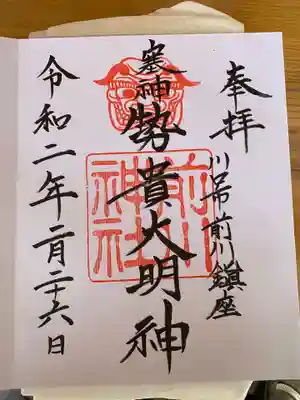 奉拝
川口市前川鎮座
塞神
勢貴大明神
前川神社
令和二年二月二十六日